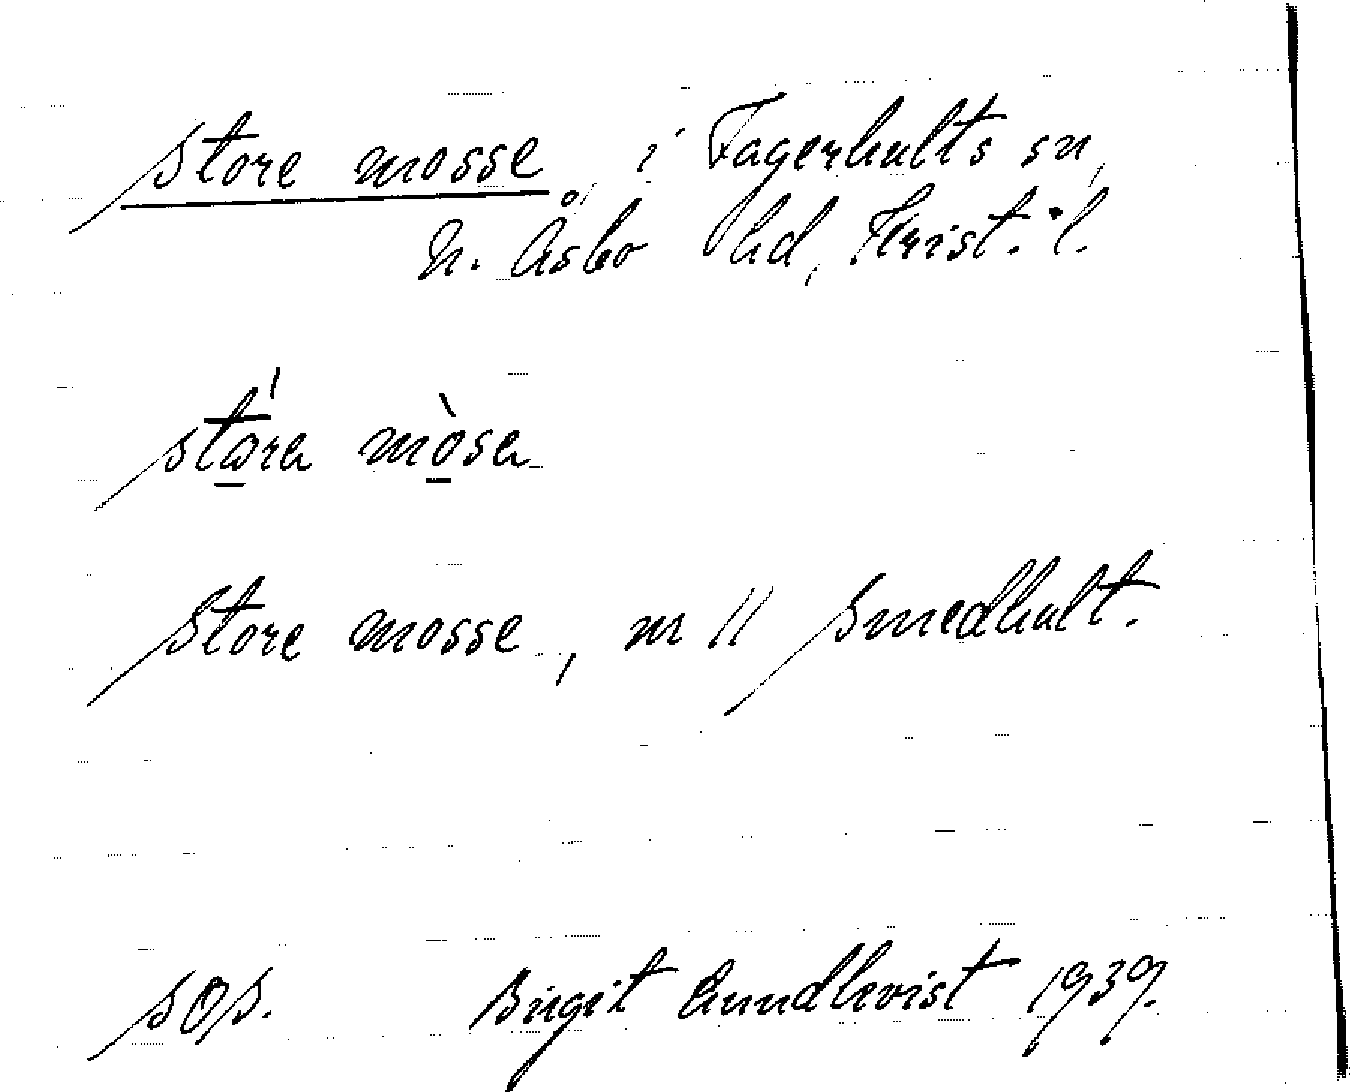 Store mosse, i Fagerhults sn,
N. Åsbo hd, Krist. l.
stóra mòsa
Store mosse, m // Smedhult.
SOS. Birgit Lundkvist 1939.